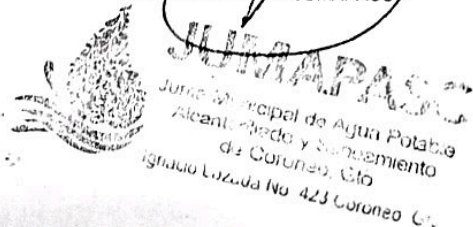 JUMAPASC
Junta Municipal de Agua Potable
Alcantarillado y Saneamiento
de Coroneo, Gto
Ignacio Lozada No. 423 Coroneo